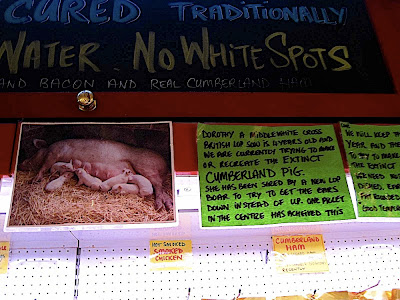 CURED TRADITIONALLY
WATER. NO WHITE SPOTS
AND BACON AND REAL CUMBERLAND HAM
DOROTHY A MIDDLEWHITE CROSS
BRITISH LOP SOW IS 4 YEARS OLD AND
WE ARE CURRENTLY TRYING TO MAKE
OR RECREATE THE EXTINCT
CUMBERLAND PIG.
SHE HAS BEEN SERVED BY A NEW LOP
BOAR TO TRY TO GET THE EARS
DOWN INSTEAD OF UP. ONE PIGLET
IN THE CENTRE HAS ACHIEVED THIS
WE WILL KEEP TH
YEAR AND THE
TO TRY TO MAKE
THE EXTINCT
WE NEED
GOOD TEMPER
HOT SMOKED
SMOKED
CHICKEN
CUMBERLAND
HAM